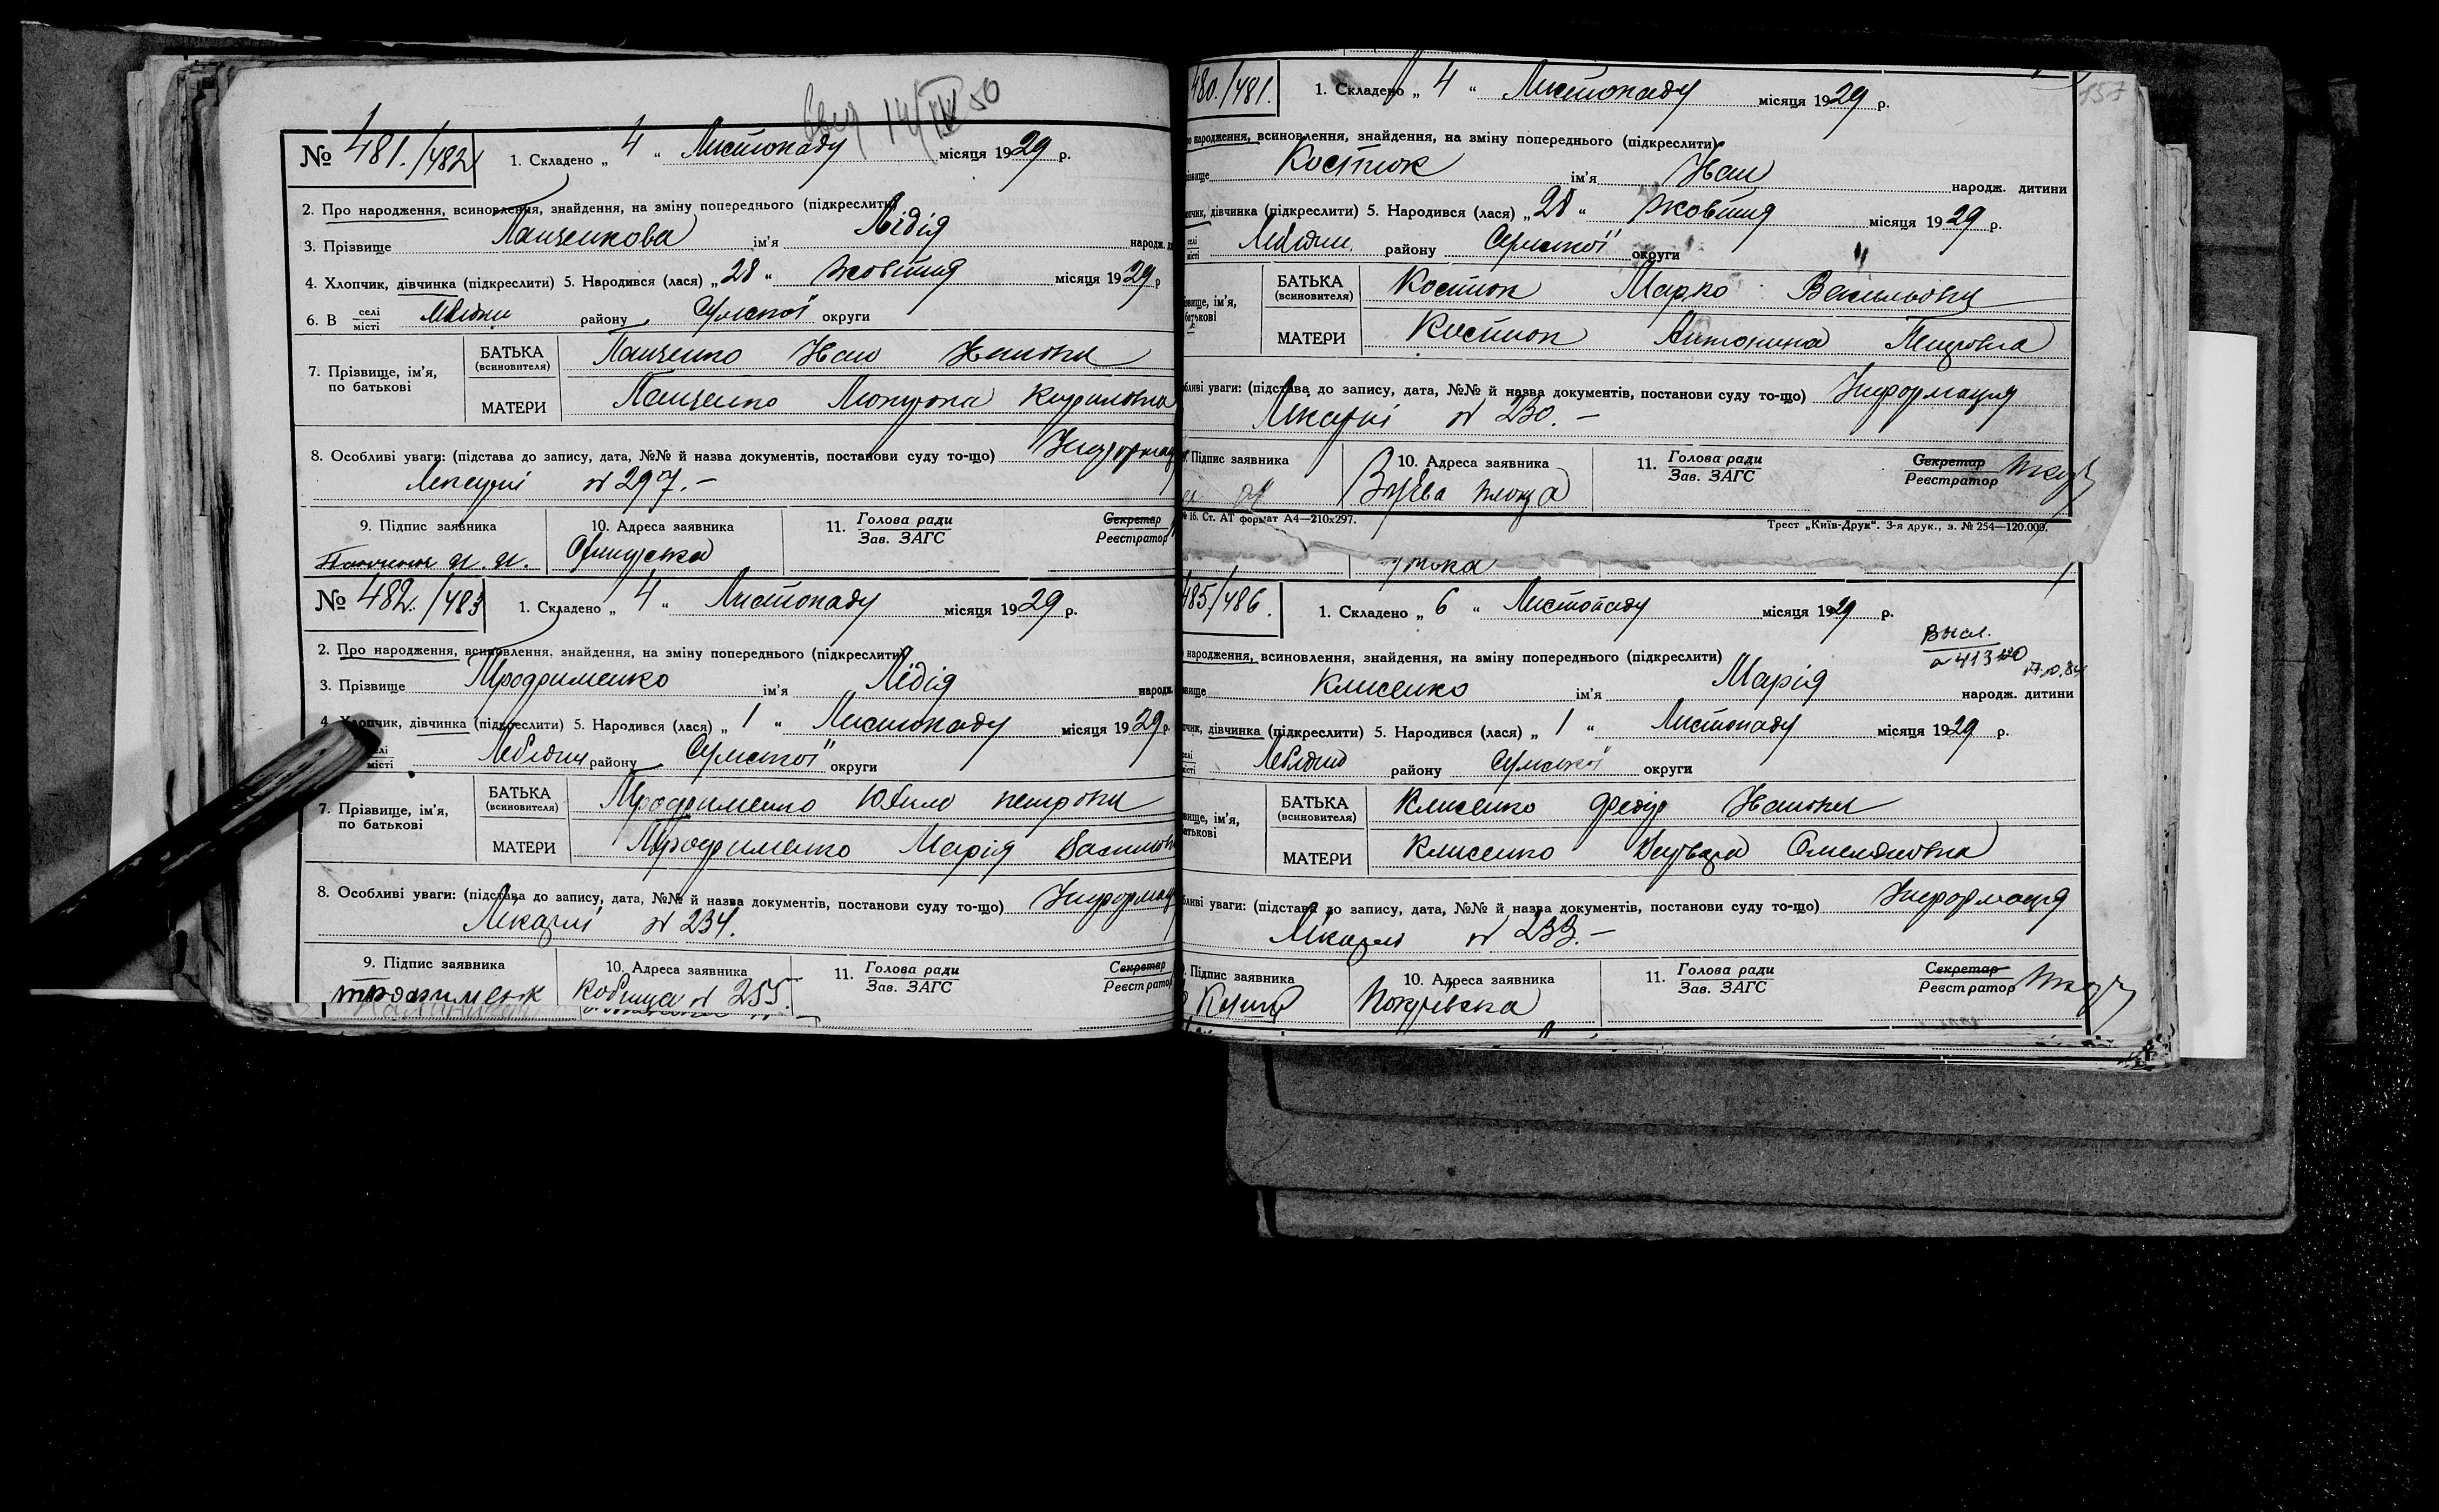 14/IV 50
№ 481./482 1. Складено „ 4 “ Листопаду місяця 1929 р.
2. Про народження, всиновлення, знайдення, на зміну попереднього (підкреслити)
3. Прізвище Панченкова ім'я Лідія народж.
4. Хлопчик, дівчинка (підкреслити) 5. Народився (лася) „ 28 “ жовтня місяця 1929 р
6. В селі місті Лебідин району Сумської округи
7. Прізвище, ім'я, по батькові
БАТЬКА (всиновителя) Панченко Іван Іванович
МАТЕРИ Панченко Мотрона Кириловна
8. Особливі уваги: (підстава до запису, дата, №№ й назва документів, постанови суду то-що) Інформац
Лікарні № 297. –
9. Підпис заявника 10. Адреса заявника 11. Голова ради Зав. ЗАГС Секретар Реєстратор
№ 482./483 1. Складено „ 4 “ Листопаду місяця 1929 р.
2. Про народження, всиновлення, знайдення, на зміну попереднього (підкреслити)
3. Прізвище Трофименко ім'я Лідія народж.
4. Хлопчик, дівчинка (підкреслити) 5. Народився (лася) „ 1 “ Листопаду місяця 1929 р.
селі місті Лебідин району Сумської округи
7. Прізвище, ім'я, по батькові
БАТЬКА (всиновителя) Трофименко Юхим Петрович
МАТЕРИ Трофименко Марія
8. Особливі уваги: (підстава до запису, дата, №№ й назва документів, постанови суду то-що) Інформац
Лікарні № 234.
9. Підпис заявника 10. Адреса заявника 11. Голова ради Зав. ЗАГС Секретар Реєстратор
трофименк Кобища № 255.
157
480./481. 1. Складено „ 4 “ Листопаду місяця 1929 р.
народження, всиновлення, знайдення, на зміну попереднього (підкреслити)
Костюк ім'я Іван народж. дитини
дівчинка (підкреслити) 5. Народився (лася) „ 28 “ жовтня місяця 1929 р.
селі місті Лебідин. району Сумської округи
БАТЬКА (всиновителя) Костюк Марко Васильович
МАТЕРИ Костюк Антонина Петровна
уваги: (підстава до запису, дата, №№ й назва документів, постанови суду то-що) Інформация
Лікарні № 230. –
Підпис заявника 10. Адреса заявника 11. Голова ради Зав. ЗАГС Секретар Реєстратор
площа
№ 16. Ст. АТ формат А4—210х297. Трест „Київ-Друк“. 3-я друк., з. № 254—120.000.
485/486. 1. Складено „ 6 “ Листопаду місяця 1929 р.
народження, всиновлення, знайдення, на зміну попереднього (підкреслити)
Высл.
Клисенко ім'я Марія народж. дитини
дівчинка (підкреслити) 5. Народився (лася) „ 1 “ Листопаду місяця 1929 р.
селі місті Лебідин району Сумської округи
БАТЬКА (всиновителя) Клисенко Федір Іванович
МАТЕРИ Клисенко Варвара Омеляновна
уваги: (підстава до запису, дата, №№ й назва документів, постанови суду то-що) Інформация
Лікарні № 233. –
Підпис заявника 10. Адреса заявника 11. Голова ради Зав. ЗАГС Секретар Реєстратор
Покрівська